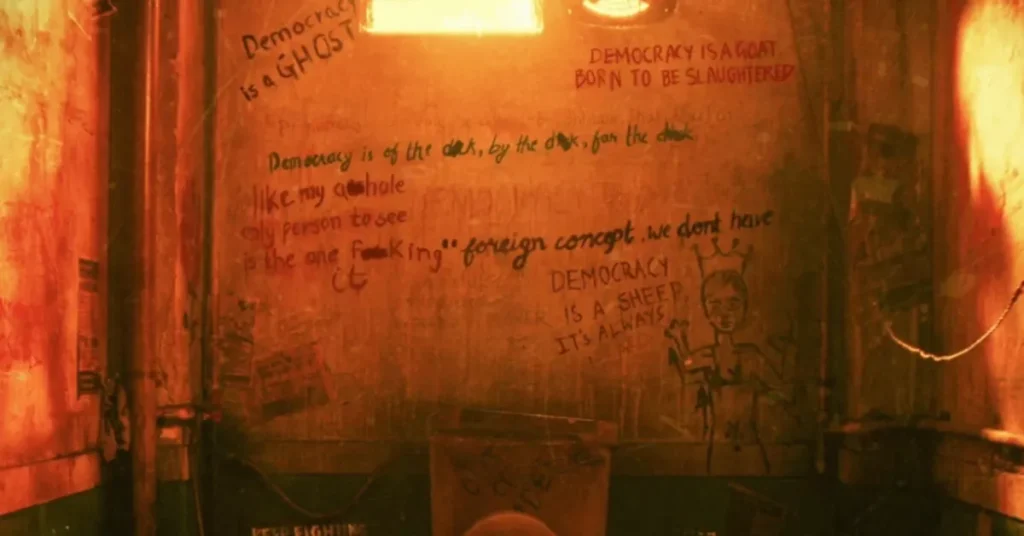 Democracy
is a GHOST
DEMOCRACY IS A GOAT
BORN TO BE SLAUGHTERED
Democracy is of the d*ck, by the d*ck, for the d*ck
like my a*shole
only person to see
is the one F**king
it
" foreign concept, we dont have
DEMOCRACY
IS A SHEEP,
IT'S ALWAYS
KEEP FIGHTING